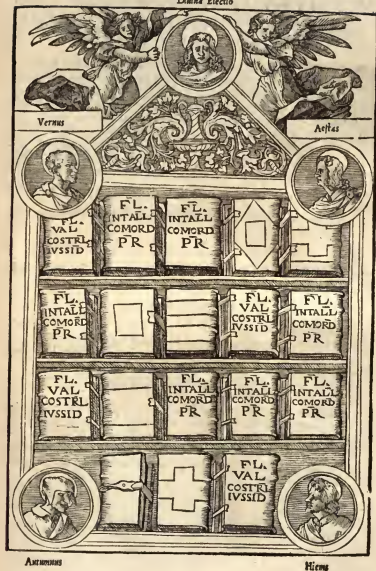 Diuina Electio
Vernus
Aestas
FL.
VAL
COSTRI
IVSSID
FL.
INTALL
COMORD
PR
FL.
INTALL
COMORD
PR
FL.
INTALL
COMORD
PR
FL.
VAL
COSTRI
IVSSID
FL.
INTALL
COMORD
PR
FL.
VAL
COSTRI
IVSSID
FL.
INTALL
COMORD
PR
FL.
INTALL
COMORD
PR
FL.
INTALL
COMORD
PR
FL.
VAL
COSTRI
IVSSID
Autumnus
Hiems